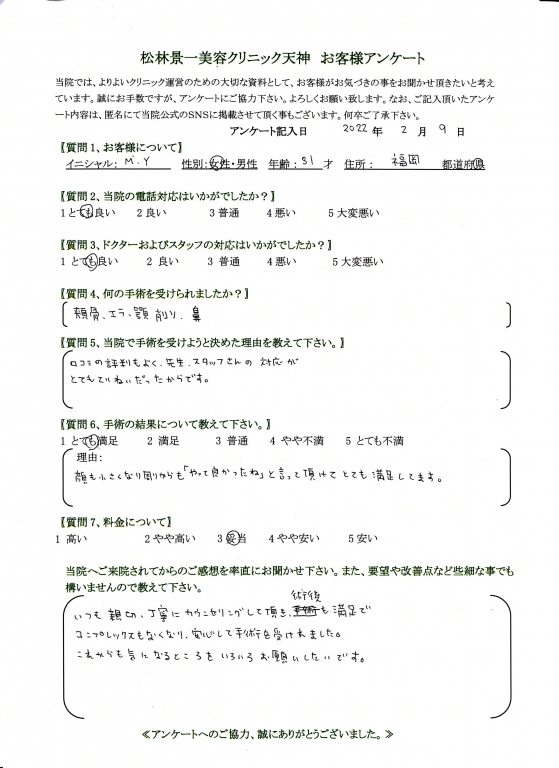 松林景一美容クリニック天神 お客様アンケート
当院では、よりよいクリニック運営のための大切な資料として、お客様がお気づきの事をお聞かせ頂きたいと考え
ています。誠にお手数ですが、アンケートにご協力下さい。よろしくお願い致します。なお、ご記入頂いたアンケ
ート内容は、匿名にて当院公式のSNSに掲載させて頂く事もございます。何卒ご了承下さい。
アンケート記入日 2022 年 2 月 9 日
【質問 1、お客様について】
イニシャル: M.Y 性別:女性・男性 年齢: 31 才 住所: 福岡 都道府県
【質問 2、当院の電話対応はいかがでしたか?】
1 とても良い 2 良い 3 普通 4 悪い 5 大変悪い
【質問 3、ドクターおよびスタッフの対応はいかがでしたか?】
1 とても良い 2 良い 3 普通 4 悪い 5 大変悪い
【質問 4、何の手術を受けられましたか?】
頬骨、エラ、顎削り、鼻
【質問 5、当院で手術を受けようと決めた理由を教えて下さい。】
口コミの評判もよく、先生、スタッフさんの対応が
とてもていねいだったからです。
【質問 6、手術の結果について教えて下さい。】
1 とても満足 2 満足 3 普通 4 やや不満 5 とても不満
理由:
顔も小さくなり周りからも「やって良かったね」と言って頂けてとても満足してます。
【質問 7、料金について】
1 高い 2 やや高い 3 妥当 4 やや安い 5 安い
当院へご来院されてからのご感想を率直にお聞かせ下さい。また、要望や改善点など些細な事でも
構いませんので教えて下さい。
いつも親切、丁寧にカウンセリングして頂き、術後も満足で
コンプレックスもなくなり、安心して手術を受けれました。
これからも気になるところをいろいろお願いしたいです。
≪アンケートへのご協力、誠にありがとうございました。≫